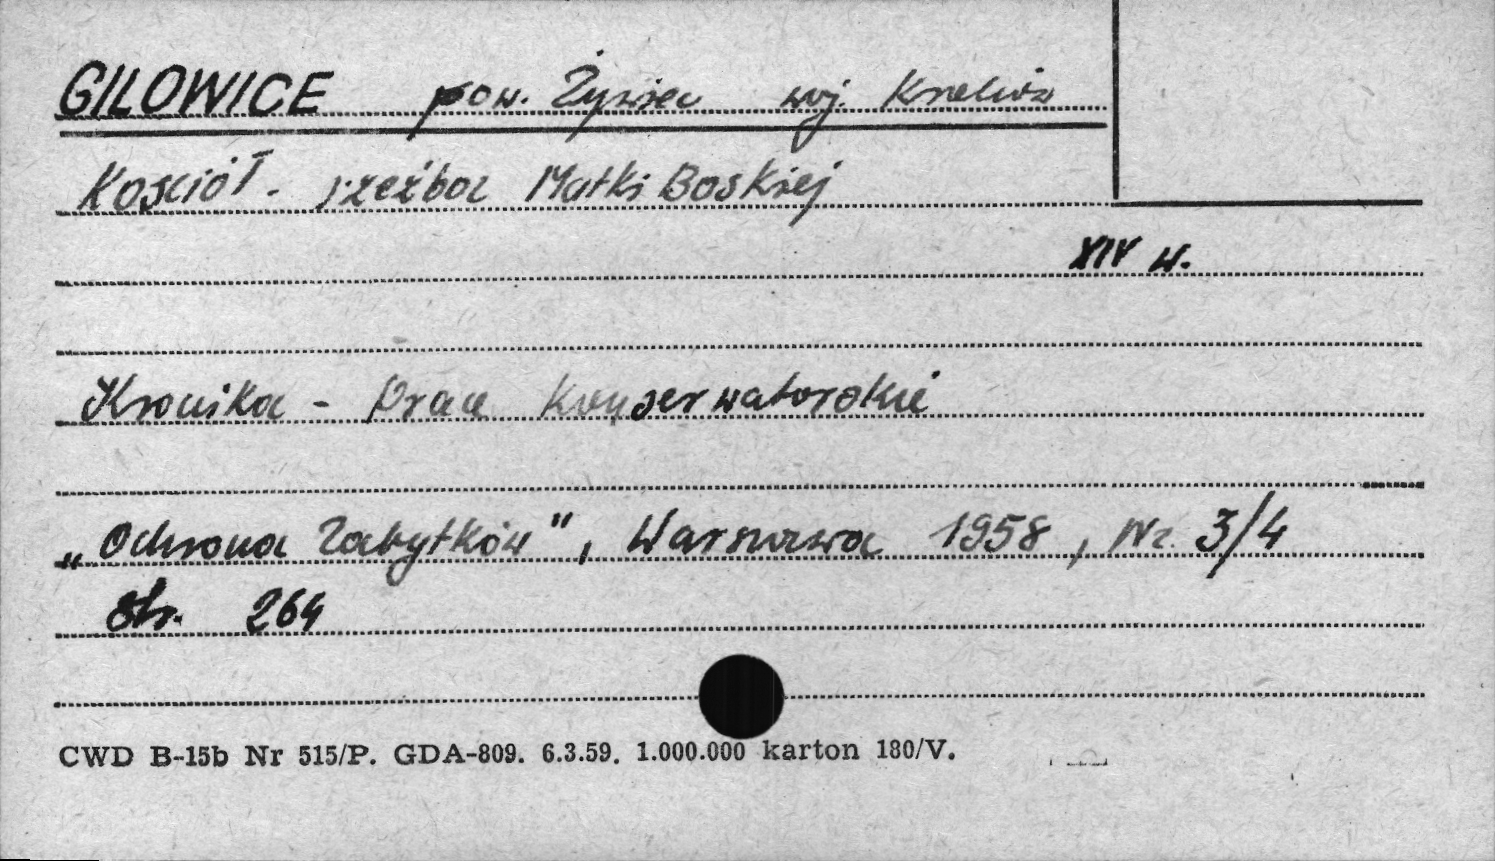 GILOWICE pow. Żywiec woj. Kraków
Kościół - rzeźba Matki Boskiej
XIV w.
Kronika - Prace konserwatorskie
„Ochrona Zabytków", Warszawa 1958, Nr. 3/4
str. 264
CWD B-15b Nr 515/P. GDA-809. 6.3.59. 1.000.000 karton 180/V.